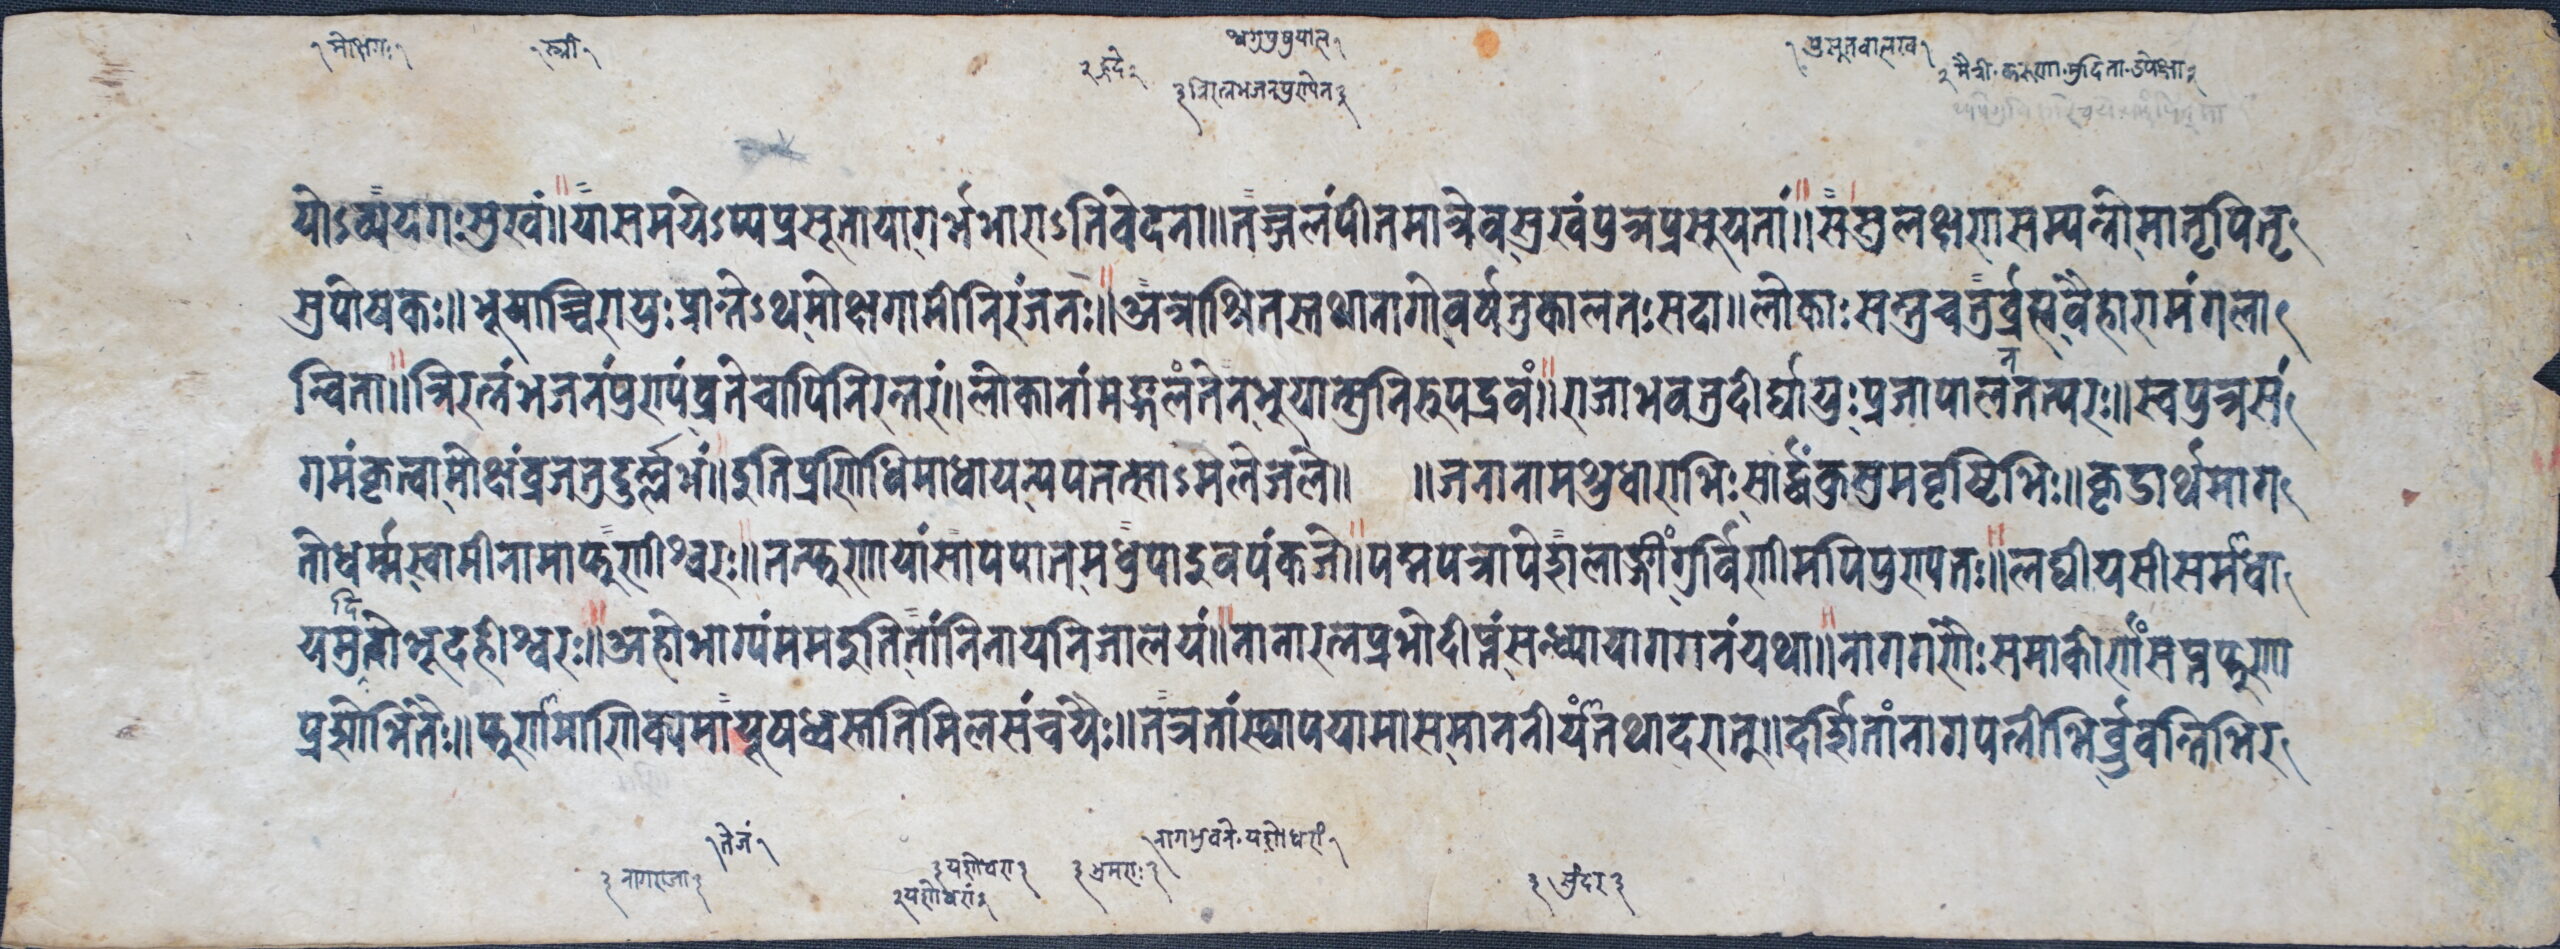 मोक्षगः
स्त्री
थ्वगुपुपुयाल
ह्रदे
त्रिरत्नभजनपुण्येन
प्रसूतबालख
मैत्री करुणा मुदिता उपेक्षा
योऽव्ययगः सुखं॥ या समयेऽप्यप्रसूता या गर्भभाराऽतिवेदना॥ तज्जलं पीतमात्रेव सुखं पुत्र प्रसूयतां॥ स सुलक्षणसम्पन्नो मातृपितृ
सुपोषकः॥ भूयाच्चिरायुः प्रान्तेऽथ मोक्षगामी निरंजनः॥ अत्राश्रितस्तथा नागो वर्षतु कालतः सदा॥ लोकाः सन्तु चतुर्ब्रह्मवैहारा मंगला
न्विता॥ त्रिरत्नं भजनं पुण्यं व्रते चापि निरन्तरं॥ लोकानां मङ्गलं तेन भूयात्सुनिरुपद्रवं॥ राजा भवतु दीर्घायुः प्रजापालनतत्परः॥ स्वपुत्रसं
गमं कृत्वा मोक्षं व्रजतु दुर्ल्लभं॥ इति प्रणिधिमाधाय न्यपतत्साऽमले जले॥ ॥ जनानामश्रुधाराभिः सार्द्धं कुसुमवृष्टिभिः॥ कृडार्थमाग
तो धर्म्मस्वामी नामा फुणीश्वरः॥ तत्फुणायां सा पपात मधुपा इव पंकजे॥ पद्मपत्रोपेशलाङ्गीं गुर्विणीमपि पुण्यतः॥ लघीयसी समाधा
य मुदितोभूदहीश्वरः॥ अहो भाग्यं मम इति तां निनाय निजालयं॥ नानारत्नप्रभोदीप्तं सन्ध्याया गगनं यथा॥ नागगणैः समाकीर्णं सप्तफुणा
प्रशोभितैः॥ फुणामाणिक्यमायूषध्वस्ततिमिलसंचयैः॥ तत्र तां स्थापयामास माननीयं तथादरात्॥ दर्शितां नागपत्नीभिर्ब्रुवन्तिभिर
तेजं
नागभुवने यशोधरां
नागराजा
यशोधरा
भ्रमराः
सुंदर
यशोधरां